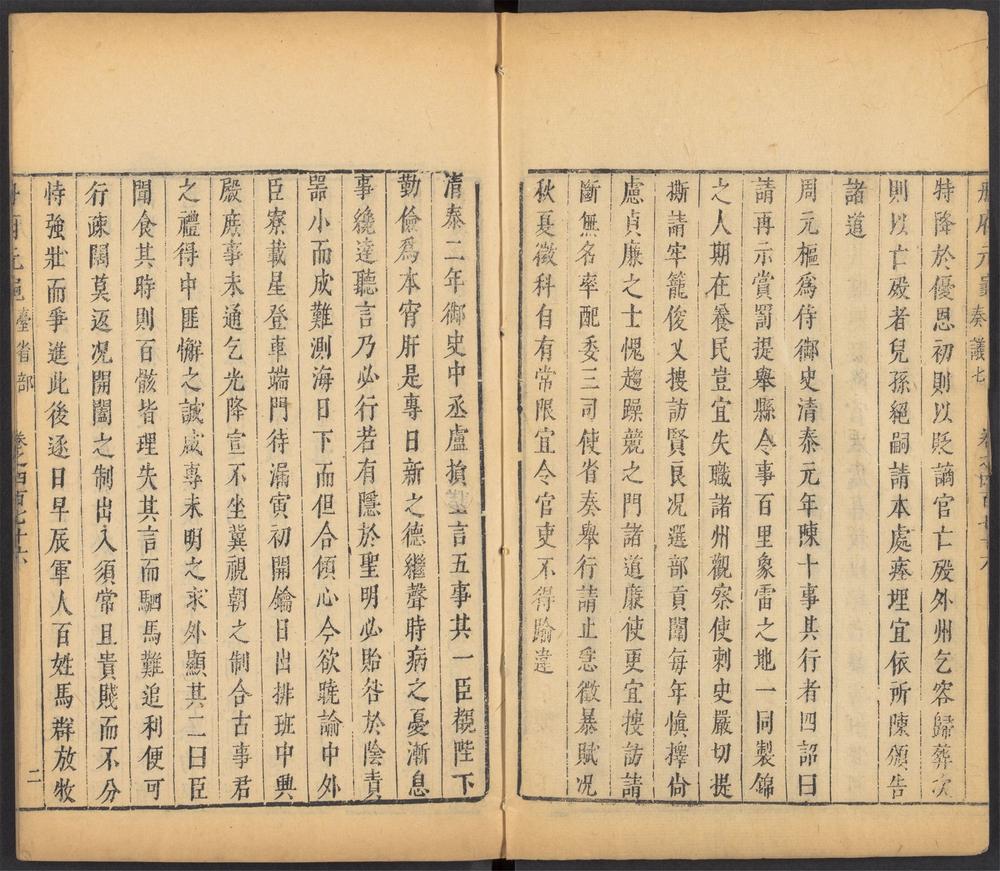 册府元龜 奏議七 卷之四百七十六
特降於優恩初則以貶謫官亡歿外州乞容歸葬次
則以亡歿者兒孫絕嗣請本處瘞埋宜依所陳頒告
諸道
周元樞爲侍御史清泰元年陳十事其行者四詔曰
請再示賞罰提舉縣令事百里象雷之地一同製錦
之人期在養民豈宜失職諸州觀察使刺史嚴切提
撕請牢籠俊乂搜訪賢良况選部貢闈每年愼擇尙
慮貞廉之士愧趨躁競之門諸道廉使更宜搜訪請
斷無名率配委三司使省奏舉行請止急徵暴賦况
秋夏徵科自有常限宜令官吏不得踰違
清泰二年御史中丞盧損言五事其一臣覩陛下
勤儉爲本宵旰是專日新之德繼聲時病之憂漸息
事纔達聽言乃必行若有隱於聖明必貽咎於陰責
噐小而成難測海日下而但合傾心今欲曉諭中外
臣寮載星登車端門待漏寅初開鑰日出排班中興
殿庶事未通乞光降宣不坐冀視朝之制合古事君
之禮得中匪懈之誠咸專未明之求外顯其二曰臣
聞食其時則百骸皆理失其言而駟馬難追利便可
行疎闊莫返况開闔之制出入須常且貴賤而不分
恃強壯而爭進此後逐日早辰軍人百姓馬群放牧
册府元龜 臺省部 卷之四百七十六 二